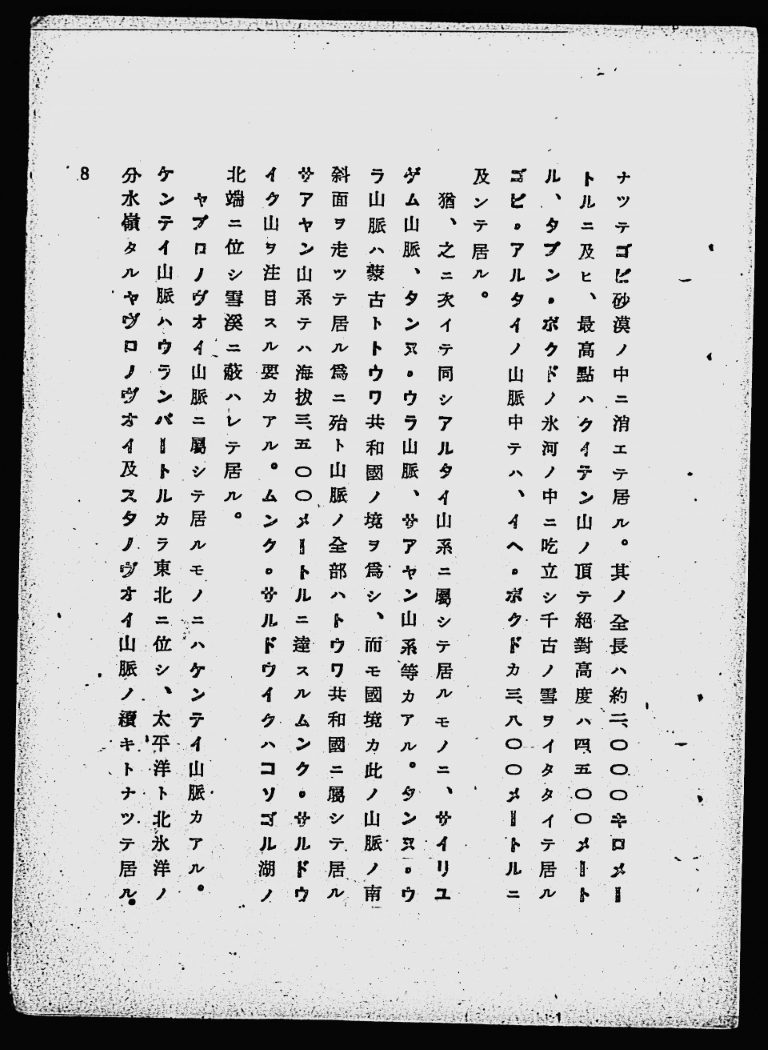 ナツテゴビ砂漠ノ中ニ消エテ居ル。其ノ全長ハ約二、〇〇〇キロメー
トルニ及ヒ、最高點ハクイテン山ノ頂テ絕對高度ハ四、五〇〇メート
ル、タブン・ボクドノ氷河ノ中ニ吃立シ千古ノ雪ヲイタタイテ居ル
ゴビ・アルタイノ山脈中テハ、イヘ・ボクドカ三、八〇〇メートルニ
及ンテ居ル。
猶、之ニ次イテ同シアルタイ山系ニ屬シテ居ルモノニ、サイリユ
ゲム山脈、タンヌ・ウラ山脈、サアヤン山系等カアル。タンヌ・ウ
ラ山脈ハ蒙古トトウワ共和國ノ境ヲ爲シ、而モ國境カ此ノ山脈ノ南
斜面ヲ走ツテ居ル爲ニ殆ト山脈ノ全部ハトウワ共和國ニ屬シテ居ル
サアヤン山系テハ海拔三、五〇〇メートルニ達スルムンク・サルドウ
イク山ヲ注目スル要カアル。ムンク・サルドウイクハコソゴル湖ノ
北端ニ位シ雪溪ニ蔽ハレテ居ル。
ヤブロノヴオイ山脈ニ屬シテ居ルモノニハケンテイ山脈カアル。
ケンテイ山脈ハウランバートルカラ東北ニ位シ、太平洋ト北氷洋ノ
分水嶺タルヤヴロノヴオイ及スタノヴオイ山脈ノ續キトナツテ居ル。
8